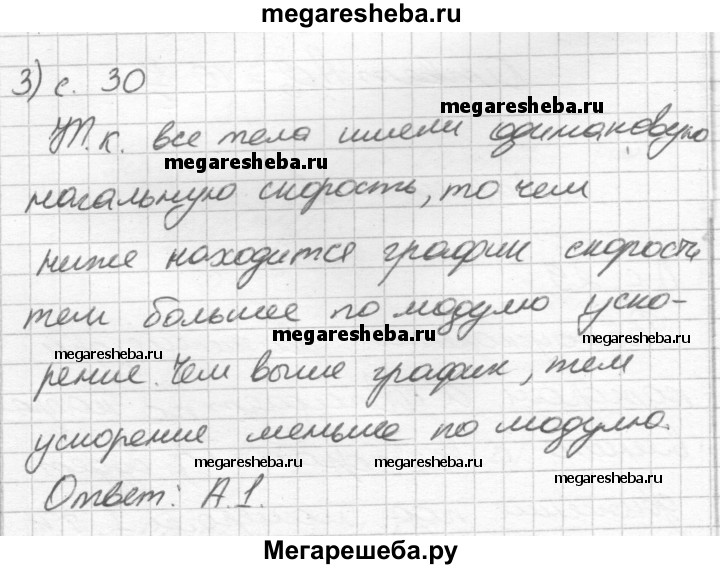 megaresheba.ru
3) с. 30
megaresheba.ru
Т.к. все тела имели одинаковую
megaresheba.ru
начальную скорость, то чем
ниже находится график скорости
тем большее по модулю уско-
megaresheba.ru
megaresheba.ru
megaresheba.ru
рение. Чем выше график, тем
ускорение меньше по модулю.
megaresheba.ru megaresheba.ru megaresheba.ru
Ответ: А.1.
Мегарешеба.ру